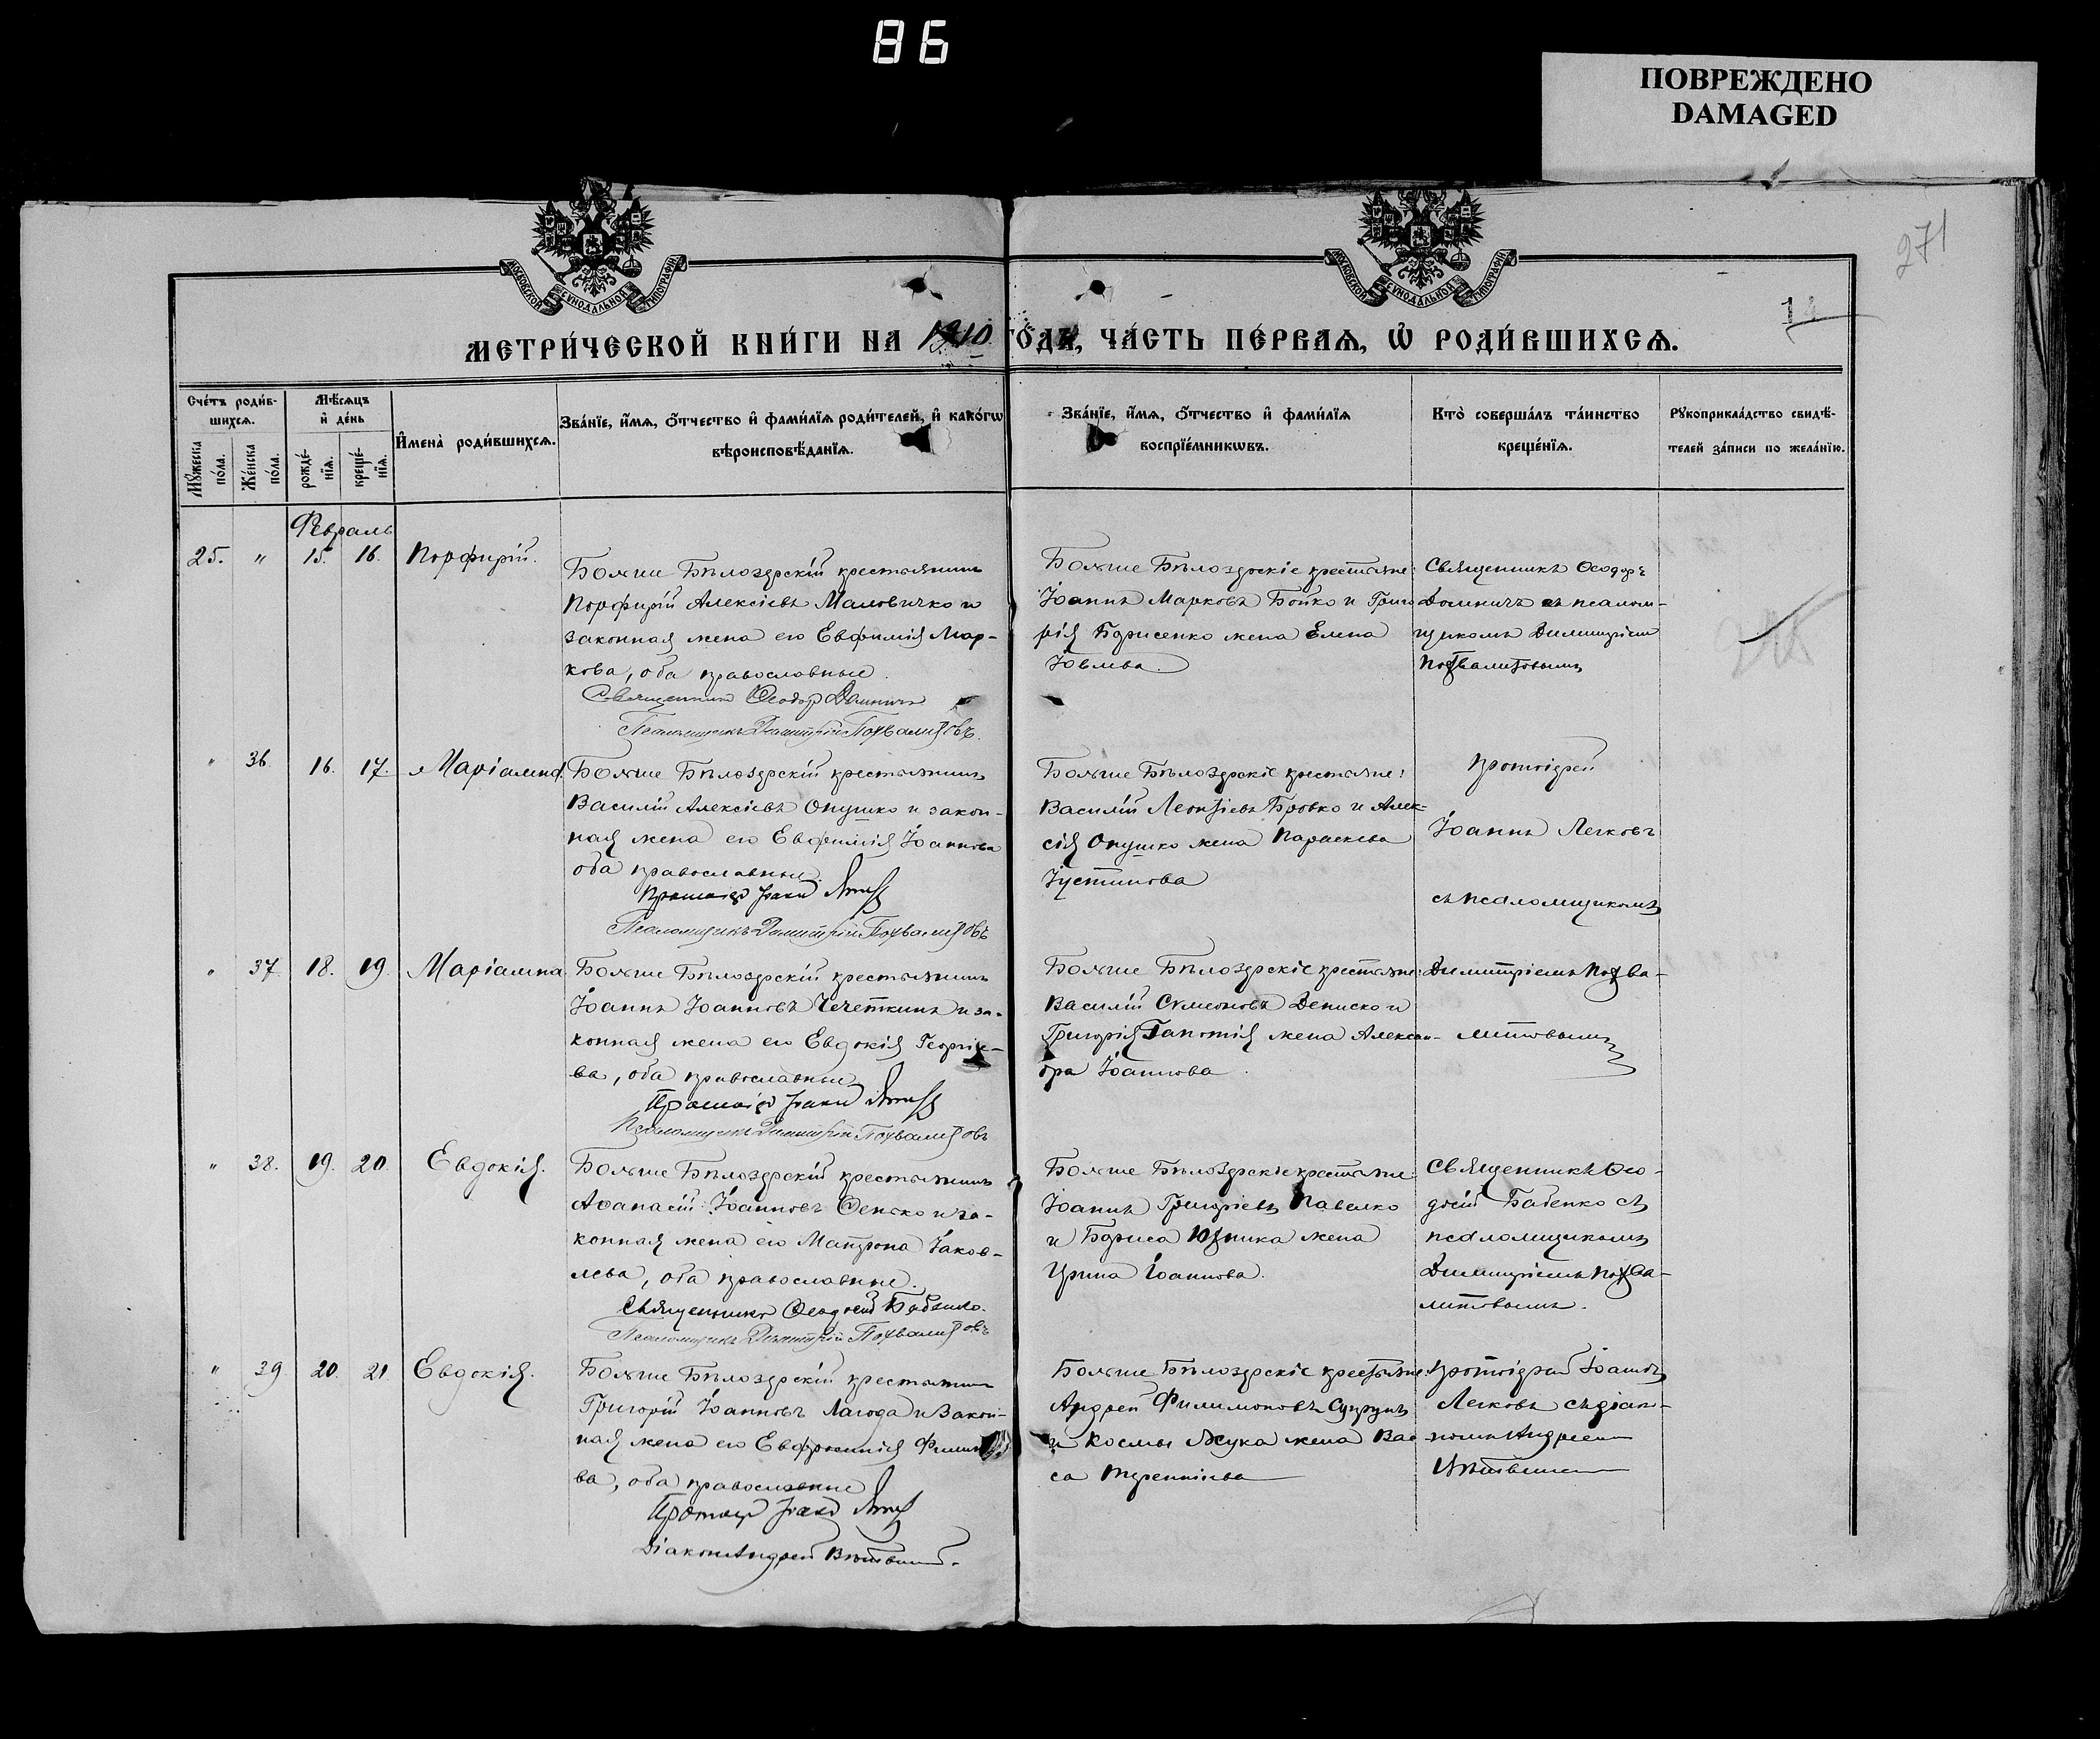 86
ПОВРЕЖДЕНО
DAMAGED
271
МОСКОВСКОЙ СѴНОДАЛЬНОЙ ТИПОГРАФІИ
МОСКОВСКОЙ СѴНОДАЛЬНОЙ ТИПОГРАФІИ
МЕТРИ́ЧЕСКОЙ КНИ́ГИ НА 1910 ГО́ДЪ, ЧА́СТЬ ПЕ́РВАѦ, Ѽ РОДИ́ВШИХСѦ.
Сче́тъ роди́в-
шихсѧ.
Мꙋ́жеска по́ла.
Же́нска по́ла.
Мѣ́сѧцъ
и҆ де́нь
рожде́-
нїѧ.
креще́-
нїѧ.
И҆мена̀ роди́вшихсѧ.
Зва́нїе, и҆́мѧ, ѻ҆́тчество и҆ фами́лїѧ роди́телей, и҆ како́гѡ
вѣроисповѣ́данїѧ.
Зва́нїе, и҆́мѧ, ѻ҆́тчество и҆ фами́лїѧ
воспрїе́мникѡвъ.
Кто̀ соверша́лъ та́инство
креще́нїѧ.
Рꙋкоприкла́дство свидѣ́-
телей за́писи по жела́нїю.
Февраль
25. " 15. 16. Порфирій.
Больше Бѣлозерскій крестьянинъ
Порфирій Алексіевъ Маловичко и
законная жена его Евфимія Мар-
кова, оба православные.
Священникъ Ѳеодоръ Доминичъ
Псаломщикъ Димитрій Похвалитовъ.
Больше Бѣлозерскіе крестьяне:
Іоаннъ Марковъ Бойко и Григо
рія Борисенко жена Елена
Іовлева.
Священникъ Ѳеодоръ
Доминичъ съ псалом-
щикомъ Димитріем
Похвалитовымъ
" 36. 16. 17. Маріамна.
Больше Бѣлозерскій крестьянинъ
Василій Алексіевъ Опушко и закон-
ная жена его Евфимія Іоаннова
оба православные.
Псаломщикъ Димитрій Похвалитовъ
Больше Бѣлозерскіе крестьяне:
Василій Леонтіевъ Бровко и Алек-
сія Опушко жена Параскева
Іустинова
Протоіерей
Іоаннъ Легковъ
съ псаломщикомъ
" 37. 18. 19. Маріамна
Больше Бѣлозерскій крестьянинъ
Іоаннъ Іоанновъ Чечеткинъ и за-
конная жена его Евдокія Георгіе-
ва, оба православные
Псаломщикъ Димитрій Похвалитовъ
Больше Бѣлозерскіе крестьяне:
Василій Сѵмеоновъ Дениско и
Григорія Гапотія жена Алексан-
дра Іоаннова.
Димитріемъ Похва-
литовымъ
" 38. 19. 20. Евдокія.
Больше Бѣлозерскій крестьянинъ
Аѳанасій Іоанновъ Ѳенько и за-
конная жена его Матрона Іаков-
лева, оба православные.
Священникъ Ѳеодосій Бабенко.
Псаломщикъ Димитрій Похвалитовъ
Больше Бѣлозерскіе крестьяне:
Іоаннъ Григоріевъ Павелко
и Бориса Юзника жена
Ирина Іоаннова.
Священникъ Ѳео-
досій Бабенко съ
псаломщикомъ
Димитріемъ Похва-
литовымъ.
" 39. 20. 21. Евдокія.
Больше Бѣлозерскій крестьянин
Григорій Іоанновъ Лагода и закон-
ная жена его Евфросинія
ва, оба православные
Діаконъ Андрей
Больше Бѣлозерскіе крестьяне:
Андрей Филимоновъ Супрунъ
и Космы Жука жена Вас
са Терентіева
Протоіерей Іоаннъ
Легковъ съ діако-
номъ Андреем